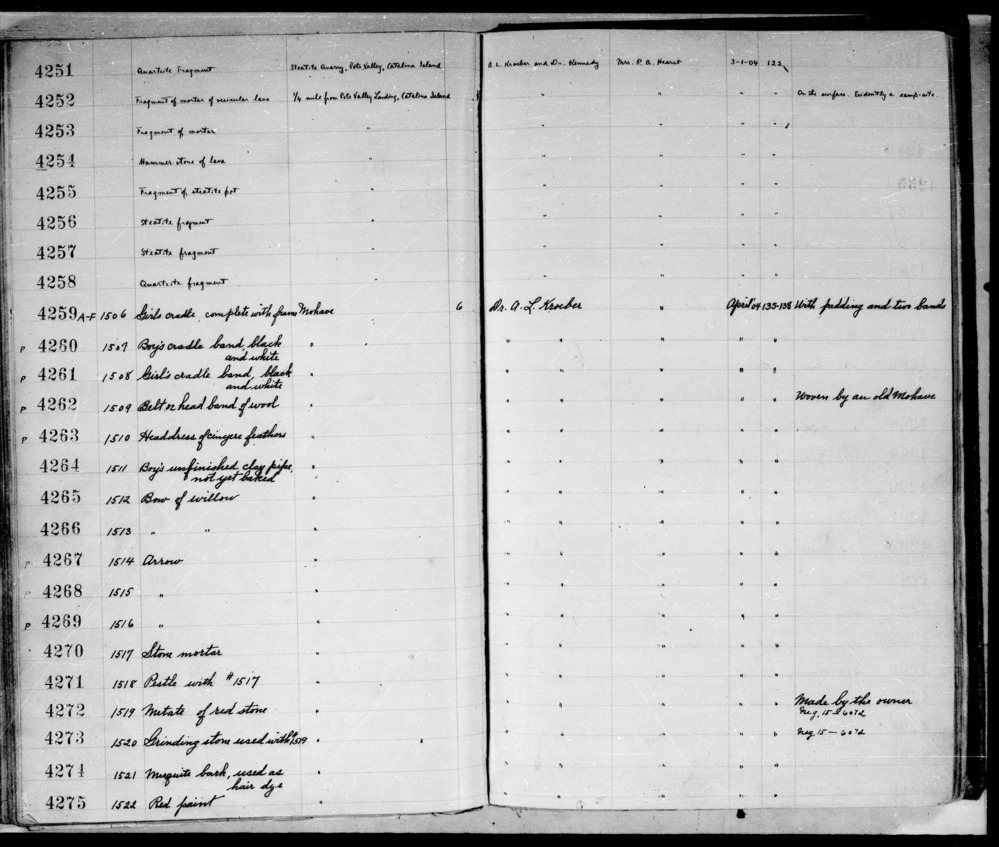 4251 Quartzite Fragment Steatite Quarry, Pots Valley, Catalina Island A. L. Kroeber and Dr. Kennedy Mrs. P. A. Hearst 3-1-04 122
4252 Fragment of mortar of vesicular lava 1/4 mile from Pots Valley Landing, Catalina Island " " " " On the surface. Evidently a camp-site.
4253 Fragment of mortar " " " " "
4254 Hammer stone of lava " " " " "
4255 Fragment of steatite pot " " " " "
4256 Steatite fragment " " " " "
4257 Steatite fragment " " " " "
4258 Quartzite fragment " " " " "
4259 A-F 1506 Girl's cradle, complete with frame Mohave 6 Dr. A. L. Kroeber " April '04 135-138 With padding and two bands
P 4260 1507 Boy's cradle band, black " " " " " " "
and white
P 4261 1508 Girl's cradle band, black " " " " " "
and white
P 4262 1509 Belt or head band of wool " " " " " " Woven by an old Mohave
P 4263 1510 Headdress of feathers " " " " " "
4264 1511 Boy's unfinished clay pipe, " " " " " "
not yet baked
4265 1512 Bow of willow " " " " " "
4266 1513 " " " " " " " "
P 4267 1514 Arrow " " " " " "
P 4268 1515 " " " " " " "
P 4269 1516 " " " " " " "
4270 1517 Stone mortar " " " " " "
4271 1518 Pestle with #1517 " " " " " "
4272 1519 Metate of red stone " " " " " " Made by the owner
Neg. 15-6072
4273 1520 Grinding stone used with #1519 " " " " " " " Neg 15-6072
4274 1521 Mesquite bark, used as " " " " " "
hair dye
4275 1522 Red paint " " " " " "